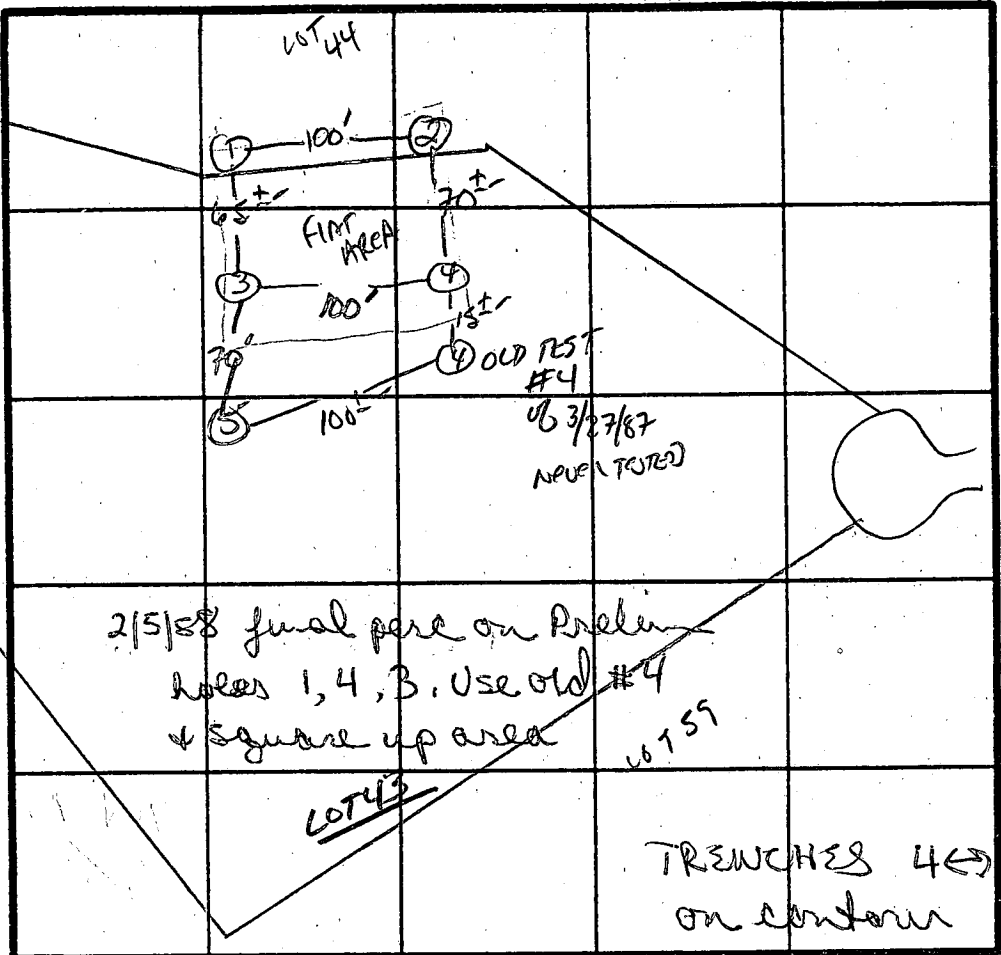 LOT 44
1 100' 2
65 ±
70 ±
FLAT
AREA
3 100' 4
15 ±
70'
4 OLD TEST
#4
3/27/87
NEVER TESTED
5 100 ±
2/5/88 final perc on Prelim
holes 1, 4, 3. Use old #4
& square up area
LOT 59
LOT 43
TRENCHES 4
on contour